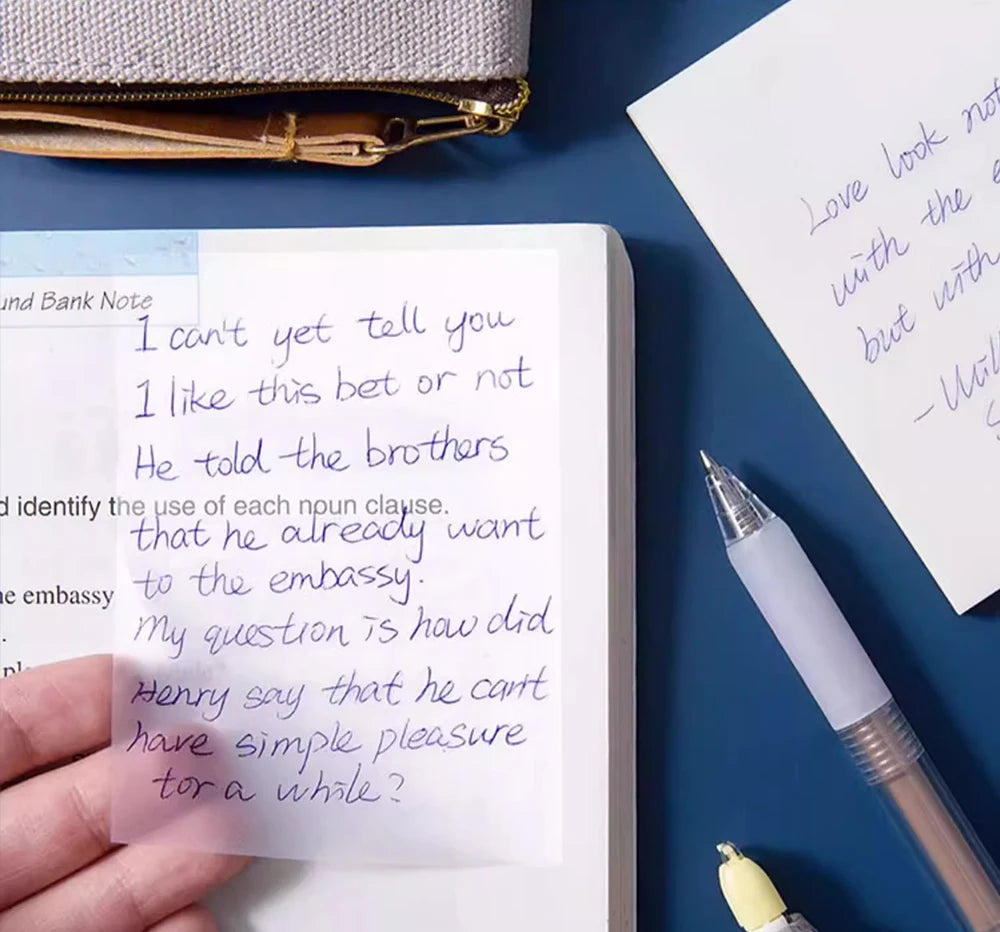 und Bank Note
I can't yet tell you
I like this bet or not
He told the brothers
d identify the use of each noun clause.
that he already want
he embassy
to the embassy.
My question is how did
Henry say that he can't
have simple pleasure
tor a while?
Love look not
with the e
but with